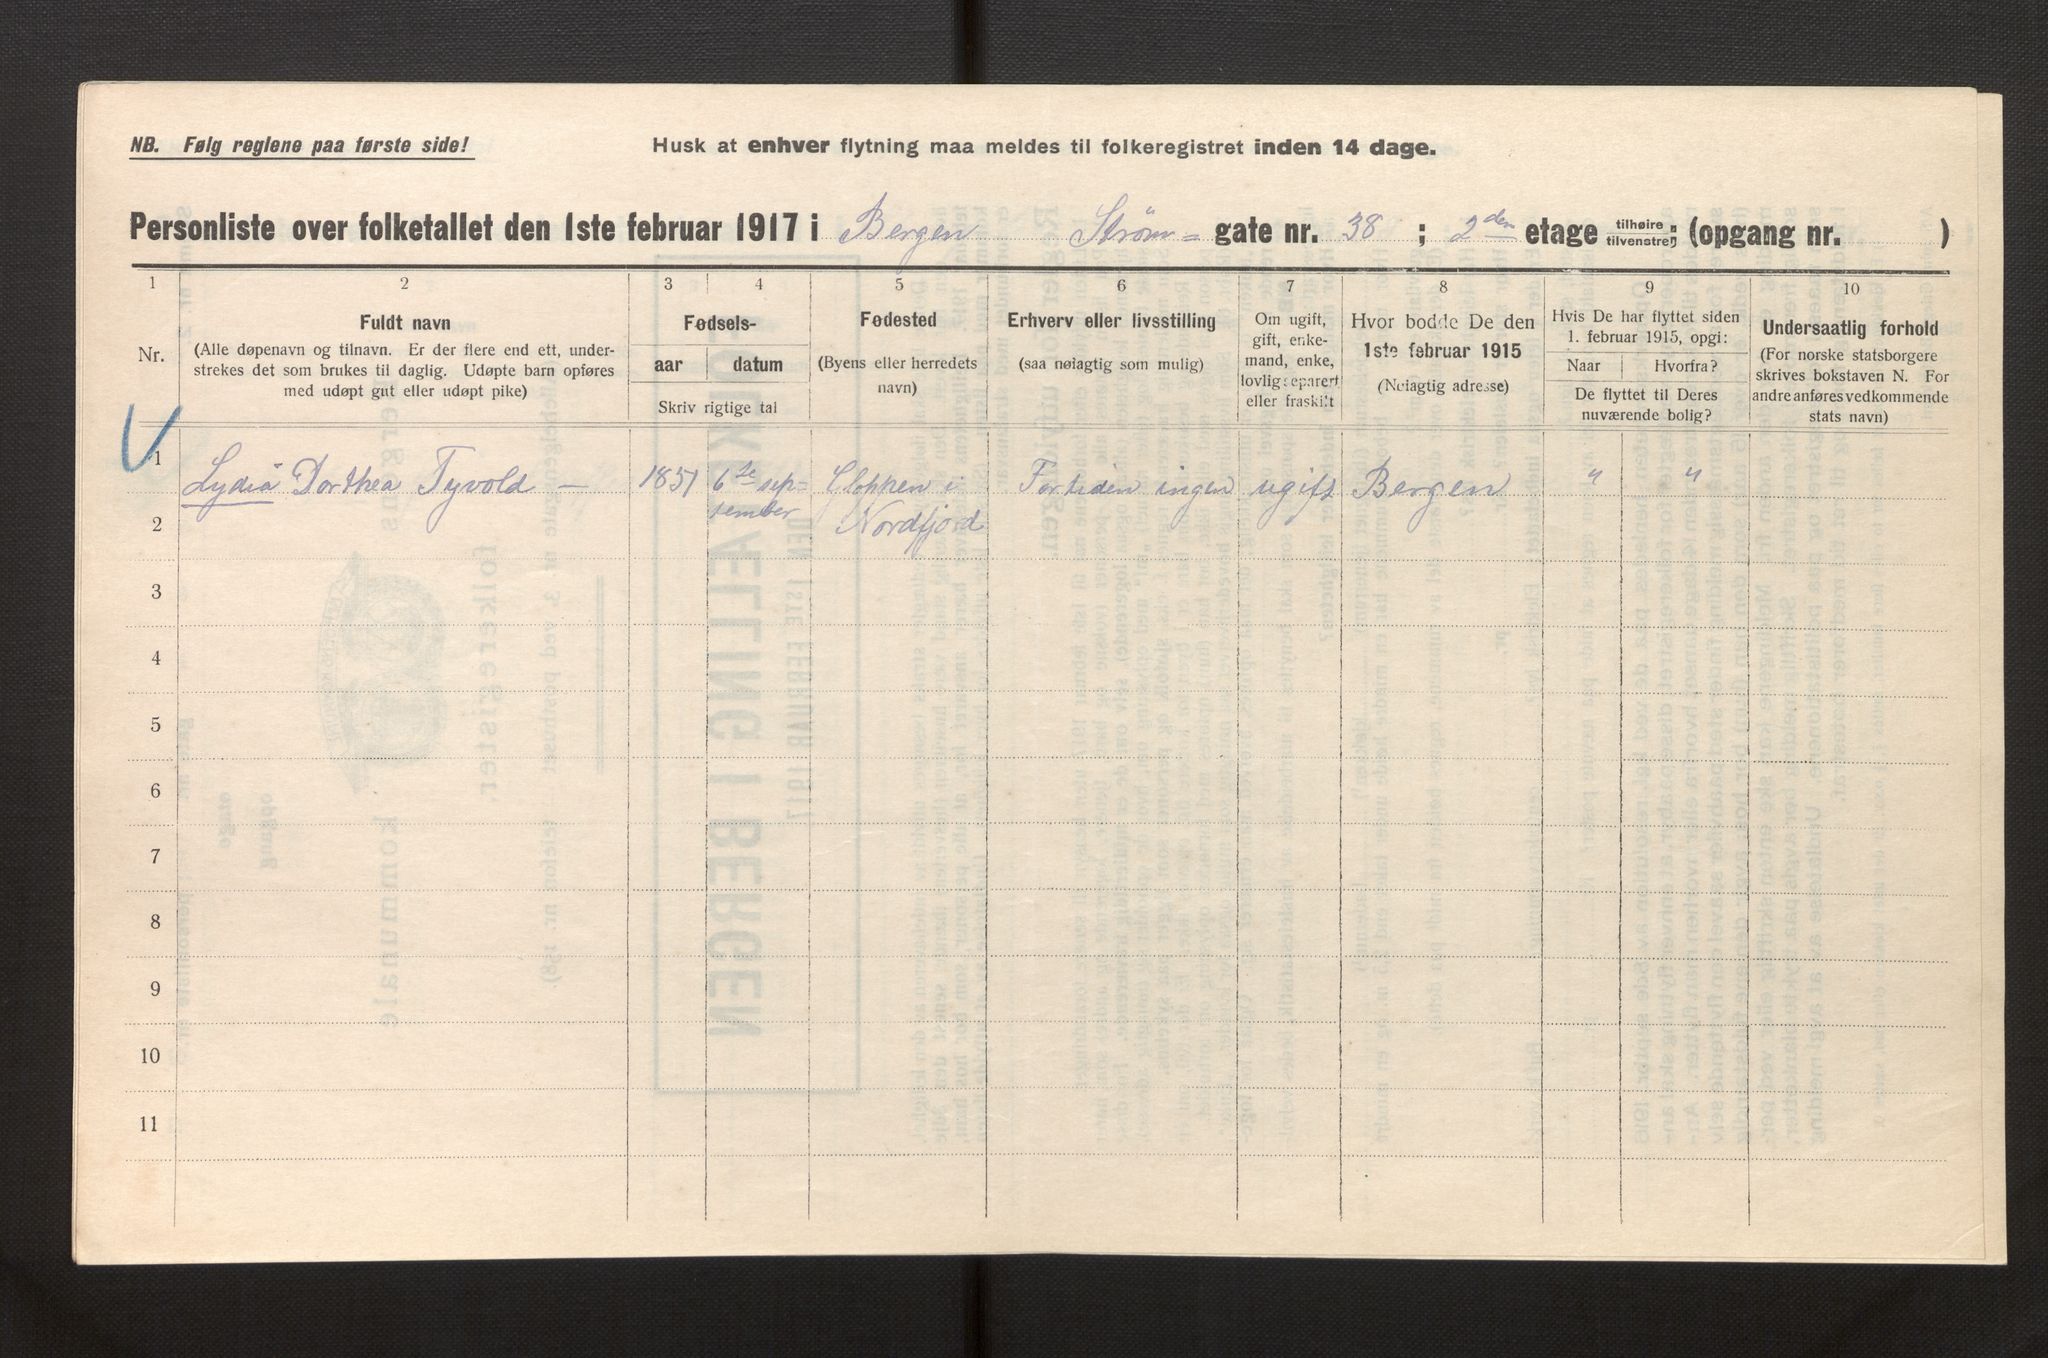 NB. Følg reglene paa første side!
Husk at enhver flytning maa meldes til folkeregistret inden 14 dage.
Personliste over folketallet den 1ste februar 1917 i Bergen Strøm= gate nr. 38 ; 2den etage tilhøire tilvenstre; (opgang nr. )
1 2 3 4 5 6 7 8 9 10
Nr.
Fuldt navn
(Alle døpenavn og tilnavn. Er der flere end ett, under-
strekes det som brukes til daglig. Udøpte barn opføres
med udøpt gut eller udøpt pike)
Fødsels-
aar datum
Skriv rigtige tal
Fødested
(Byens eller herredets
navn)
Erhverv eller livsstilling
(saa nøiagtig som mulig)
Om ugift,
gift, enke-
mand, enke,
lovlig separert
eller fraskilt
Hvor bodde De den
1ste februar 1915
(Nøiagtig adresse)
Hvis De har flyttet siden
1. februar 1915, opgi:
Naar Hvorfra?
De flyttet til Deres
nuværende bolig?
Undersaatlig forhold
(For norske statsborgere
skrives bokstaven N. For
andre anføres vedkommende
stats navn)
1 Lydia Dorthea Tyvold — 1851 6te sep= Gloppen i Fortiden ingen ugift Bergen " "
2 tember Nordfjord
3
4
5
6
7
8
9
10
11